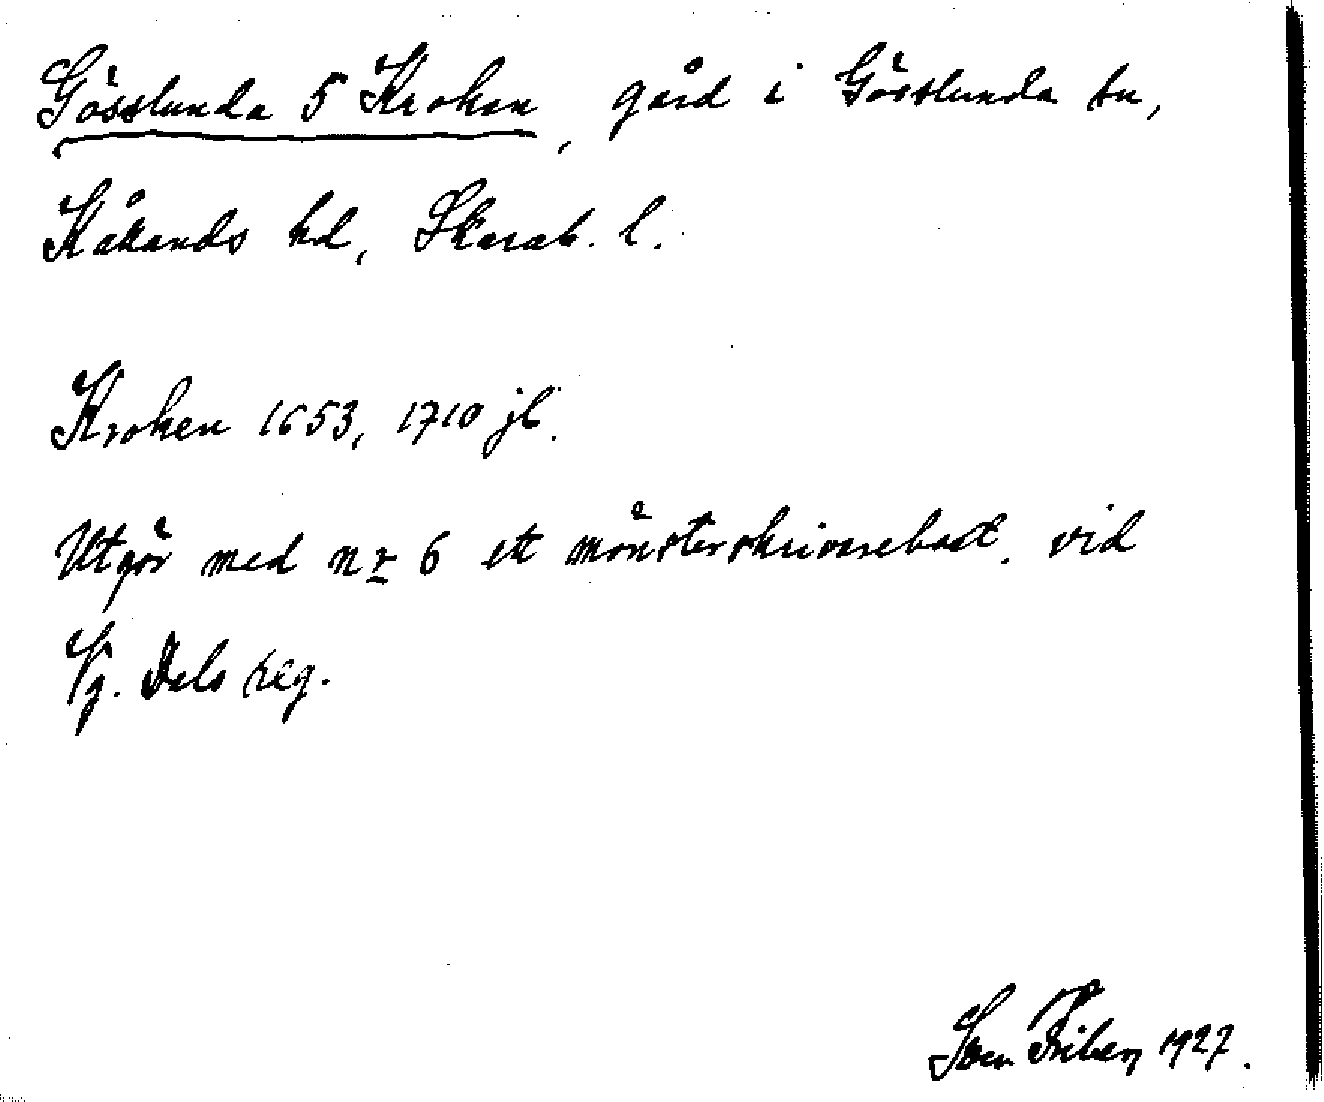 Gösslunda 5 Kroken, gård i Gösslunda sn,
Kållands hd, Skarab. l.
Kroken 1653, 1710 jb.
Utgör med nr 6 ett mönsterskrivarebost. vid
Vg. Dals reg.
Sven Friberg 1927.